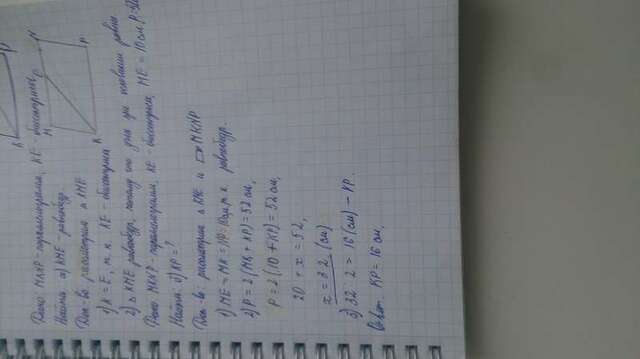 Дано: MKNP - параллелограмм, KE - биссектриса
Найти: а) KME - равнобедр.
Док-во: рассмотрим Δ KME
1) K = E, т. к. KE - биссектриса
2) Δ KME равнобедр., потому что углы при основании равны
Дано: MKNP - параллелограмм, KE - биссектриса, ME = 10 см, P = 52
Найти: б) KP = ?
Док-во: рассмотрим Δ KME и ▱ MKNP
1) ME = MK = NP = 10 см, т. к. равнобедр.
2) P = 2(MK + KP) = 52 см,
P = 2(10 + KP) = 52 см,
20 + x = 52,
x = 32 (см)
3) 32 : 2 = 16 (см) - KP.
Ответ: KP = 16 см.